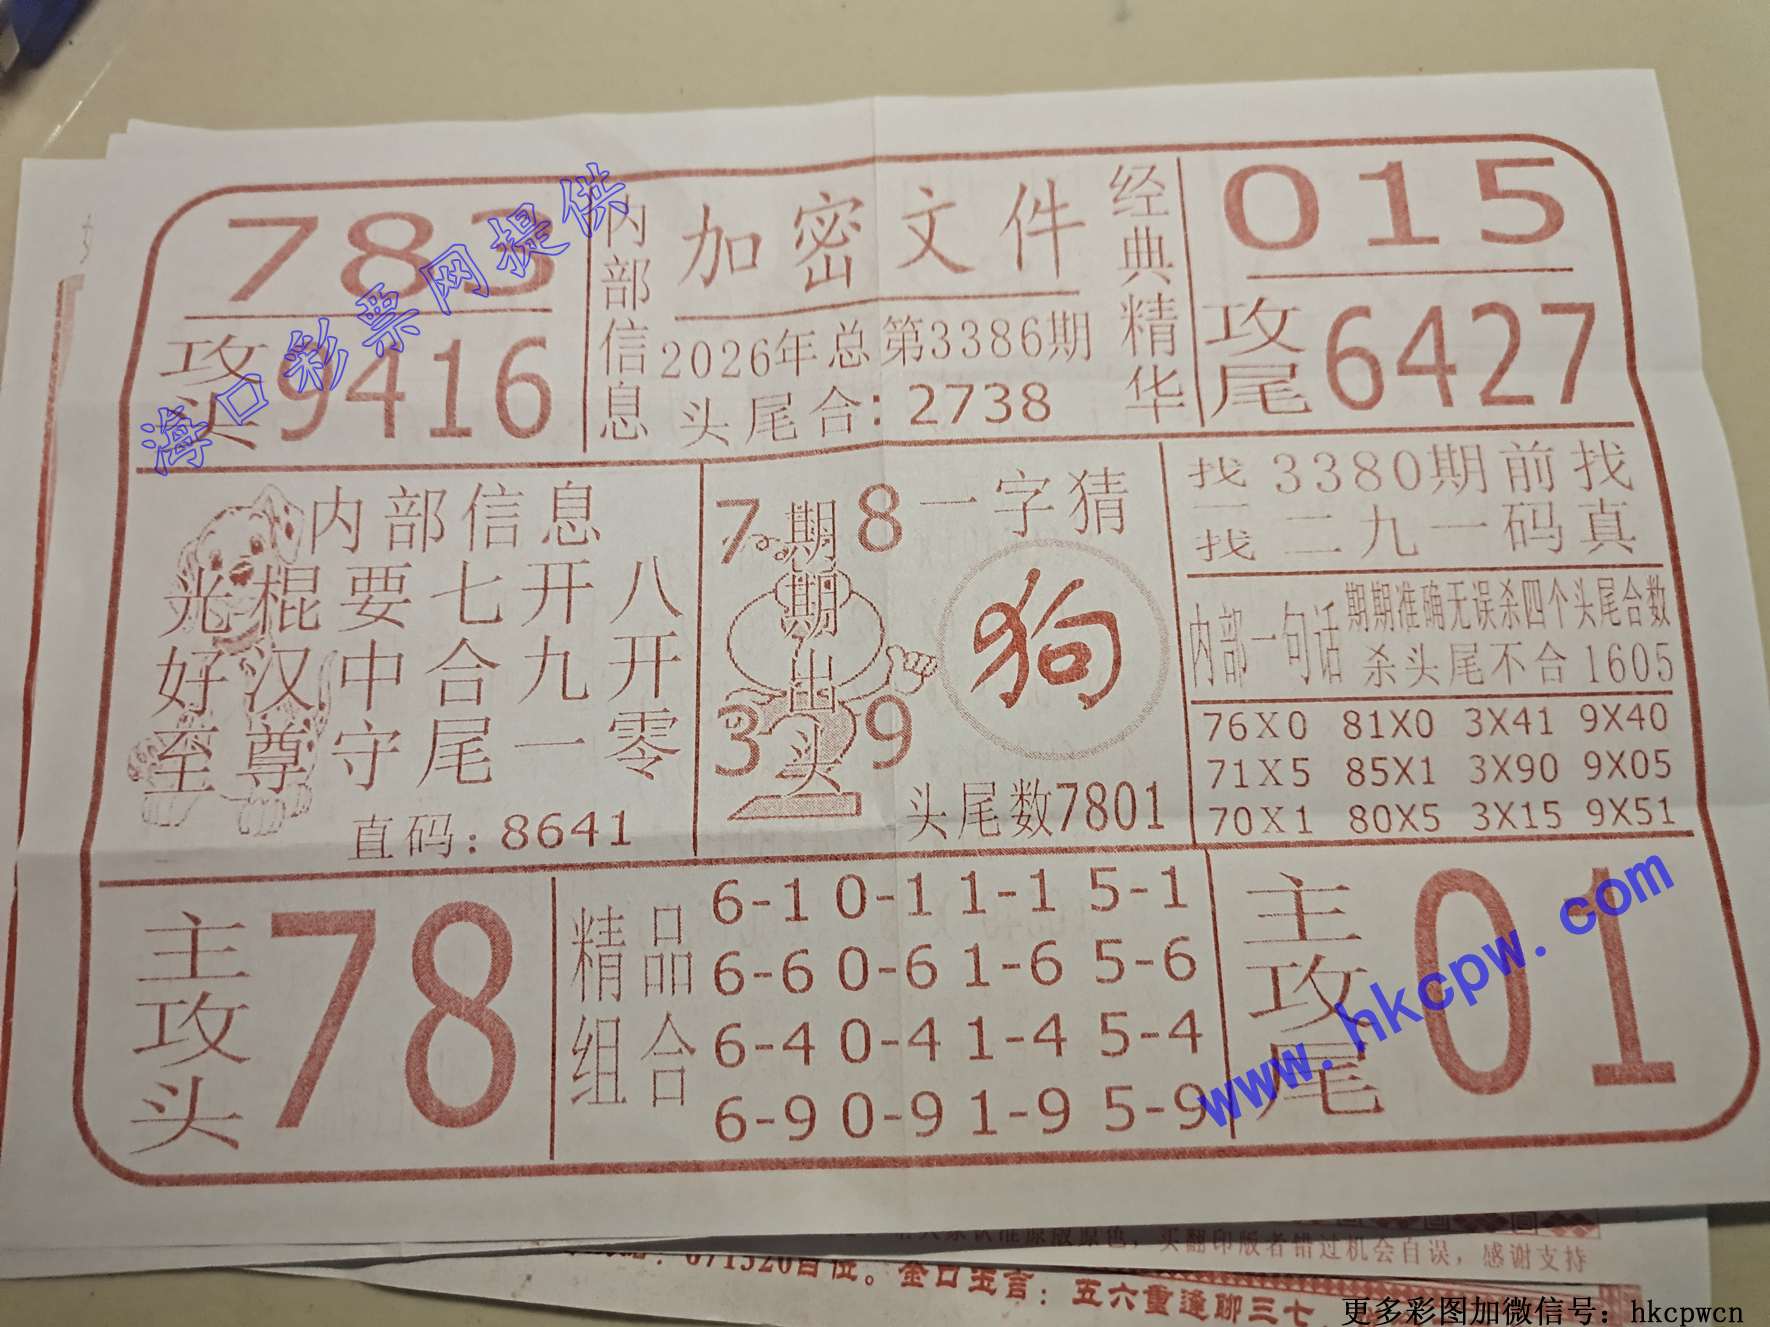 783
攻头9416
内部信息
加密文件
2026年总第3386期
头尾合：2738
经典精华
015
攻尾6427
海口彩票网提供
内部信息
光棍要七开八
好汉中合九开
至尊守尾一零
直码：8641
7 8
期期出头
3 9
一字猜
狗
头尾数7801
找一找
3380期前找
二九一码真
内部一句话
期期准确无误杀四个头尾合数
杀头尾不合1605
76X0 81X0 3X41 9X40
71X5 85X1 3X90 9X05
70X1 80X5 3X15 9X51
主攻头
78
精品组合
6-1 0-1 1-1 5-1
6-6 0-6 1-6 5-6
6-4 0-4 1-4 5-4
6-9 0-9 1-9 5-9
主攻尾
01
www.hkcpw.com
原版原色，买翻印版者错过机会自误，感谢支持
671320百位。金口玉言：五六重逢聊三七
更多彩图加微信号：hkcpwcn